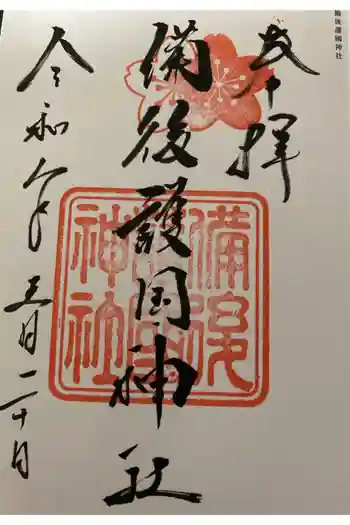 備後護國神社
奉拝
備後護国神社
備後護國神社
令和六年五月二十日